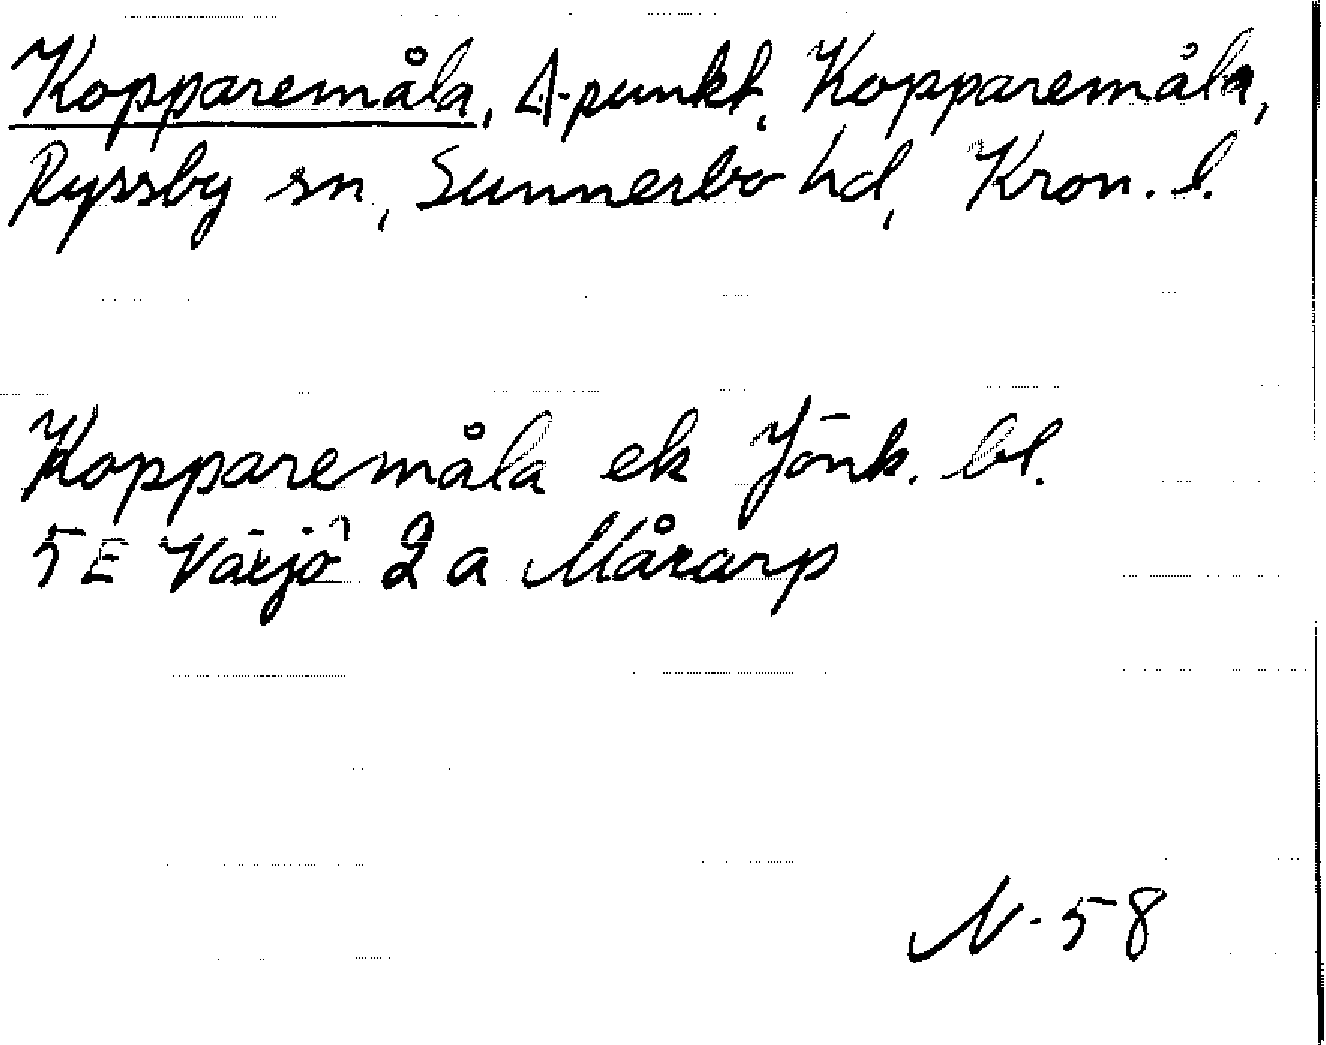 Kopparemåla, A-punkt, Kopparemåla,
Ryssby sn, Sunnerbo hd, Kron. l.
Kopparemåla ek Jönk. bl.
5E Växjö 2a Mårarp
N-58